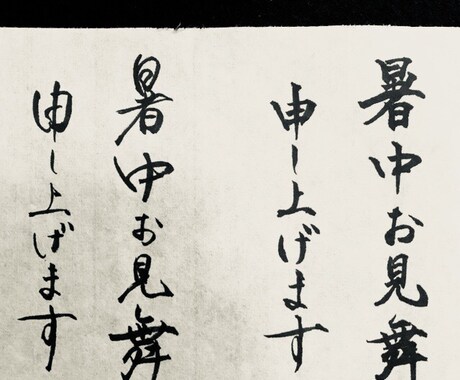 暑中お見舞
申し上げます
暑中お見舞
申し上げます